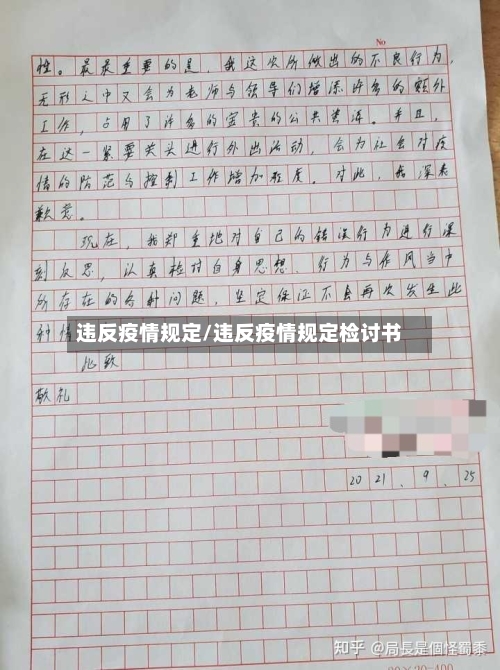 No
性。最最重要的是，我这次所做出的不良行为，
无形之中又会为老师与领导们增添许多的额外
工作，占用了许多的宝贵的公共资源。并且，
在这一紧要关头进行外出活动，会为社会对疫
情的防范与控制工作增加程度。对此，我深表
歉意。
现在，我郑重地对自己的错误行为进行深
刻反思，认真检讨自身思想、行为与作风当中
所存在的各种问题，坚定保证不会再次发生此
种情
违反疫情规定/违反疫情规定检讨书
此致
敬礼
2021.9.25
知乎 @局長是個怪蜀黍